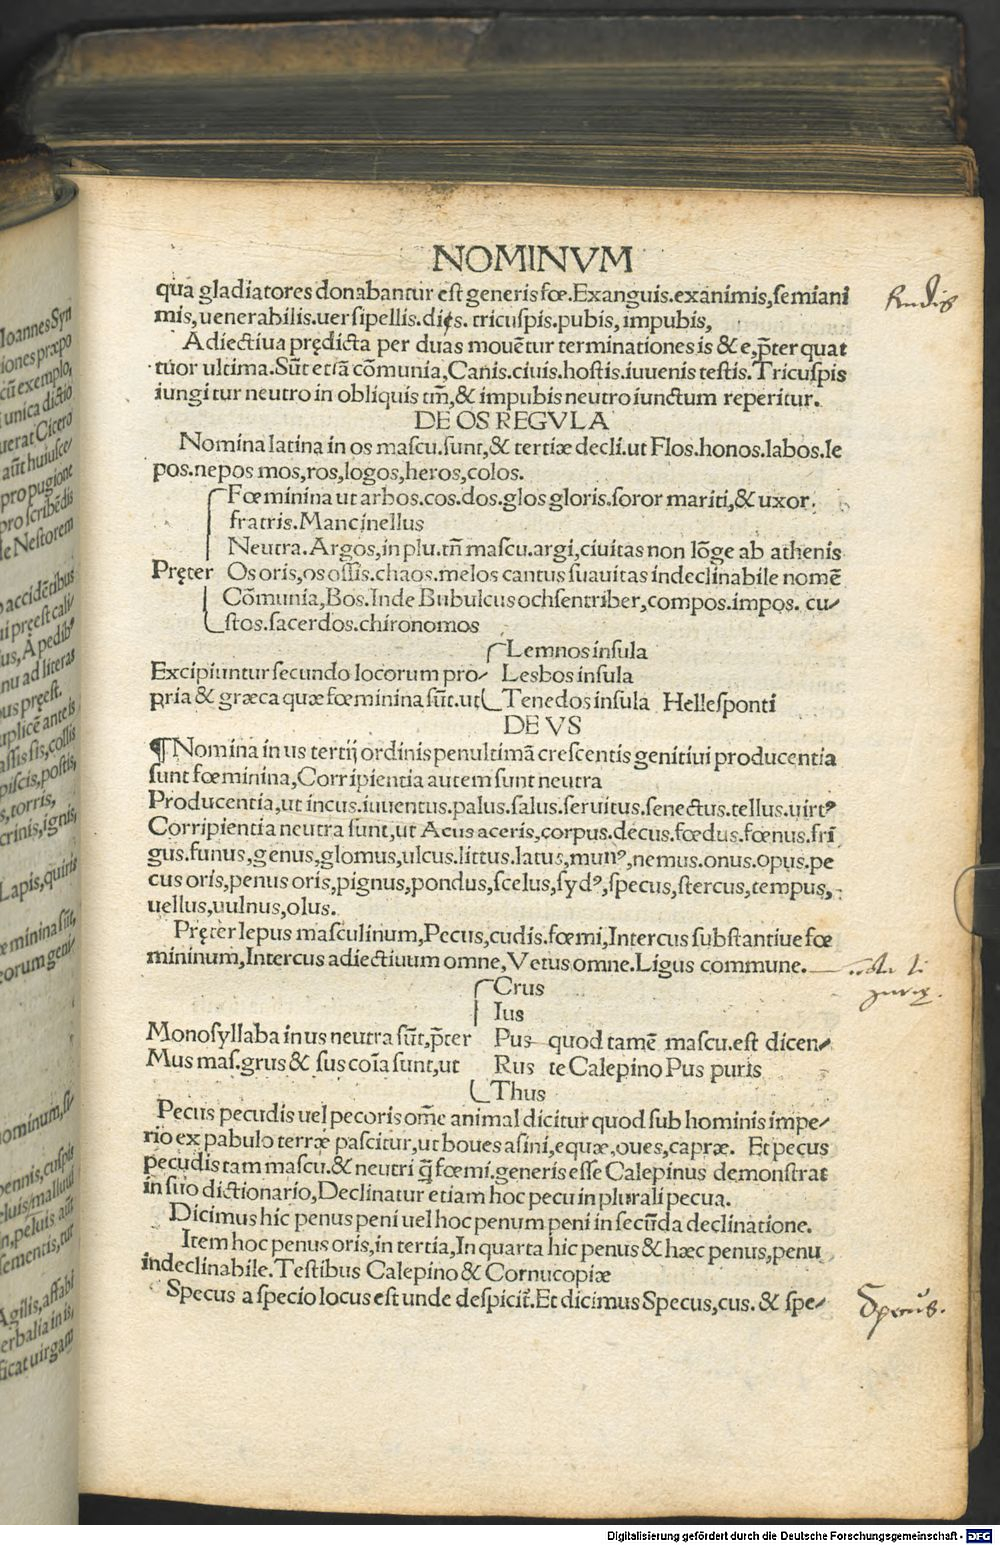 NOMINVM
qua gladiatores donabantur est generis fœ. Exanguis. exanimis, semiani
mis, uenerabilis. uersipellis. dięs. tricuspis. pubis, impubis, Rudis
Adiectiua prędicta per duas mouẽtur terminationes is & e, p̃ter quat
tuor ultima. Sũt etiã cõmunia, Canis. ciuis. hostis. iuuenis testis. Tricuspis
iungitur neutro in obliquis tm̃, & impubis neutro iunctum reperitur.
DE OS REGVLA
Nomina latina in os mascu. sunt, & tertiæ decli. ut Flos. honos. labos. le
pos. nepos mos, ros, logos, heros, colos.
Fœminina ut arbos. cos. dos. glos gloris. soror mariti, & uxor
fratris. Mancinellus
Neutra. Argos, in plu. tñ mascu. argi, ciuitas non lõge ab athenis
Pręter Os oris, os ossis. chaos. melos cantus suauitas indeclinabile nomẽ
Cõmunia, Bos. Inde Bubulcus ochsentriber, compos. impos. cu-
stos. sacerdos. chironomos
Lemnos insula
Excipiuntur secundo locorum pro- Lesbos insula
pria & græca quæ fœminina sũt. ut Tenedos insula Hellesponti
DE VS
¶ Nomina in us tertij ordinis penultimã crescentis genitiui producentia
sunt fœminina, Corripientia autem sunt neutra
Producentia, ut incus. iuuentus. palus. salus. seruitus. senectus. tellus. uirtꝰ
Corripientia neutra sunt, ut Acus aceris, corpus. decus. fœdus. fœnus. fri
gus. funus, genus, glomus, ulcus. littus. latus, munꝰ, nemus. onus. opus. pe
cus oris, penus oris, pignus, pondus, scelus, sydꝰ, specus, stercus, tempus,
uellus, uulnus, olus.
Pręter lepus masculinum, Pecus, cudis. fœmi, Intercus substantiue fœ
mininum, Intercus adiectiuum omne, Vetus omne. Ligus commune.
Crus
Ius
Monosyllaba in us neutra sũt, p̃ter Pus quod tamẽ mascu. est dicen-
Mus mas. grus & sus coĩa sunt, ut Rus te Calepino Pus puris
Thus
Pecus pecudis uel pecoris om̃e animal dicitur quod sub hominis impe-
rio ex pabulo terræ pascitur, ut boues asini, equæ, oues, capræ. Et pecus
pecudis tam mascu. & neutri q̃ fœmi. generis esse Calepinus demonstrat
in suo dictionario, Declinatur etiam hoc pecu in plurali pecua.
Dicimus hic penus peni uel hoc penum peni in secũda declinatione.
Item hoc penus oris, in tertia, In quarta hic penus & hæc penus, penu
indeclinabile. Testibus Calepino & Cornucopiæ
Specus a specio locus est unde despicit̃. Et dicimus Specus, cus. & spe- Specus.
Digitalisierung gefördert durch die Deutsche Forschungsgemeinschaft - DFG